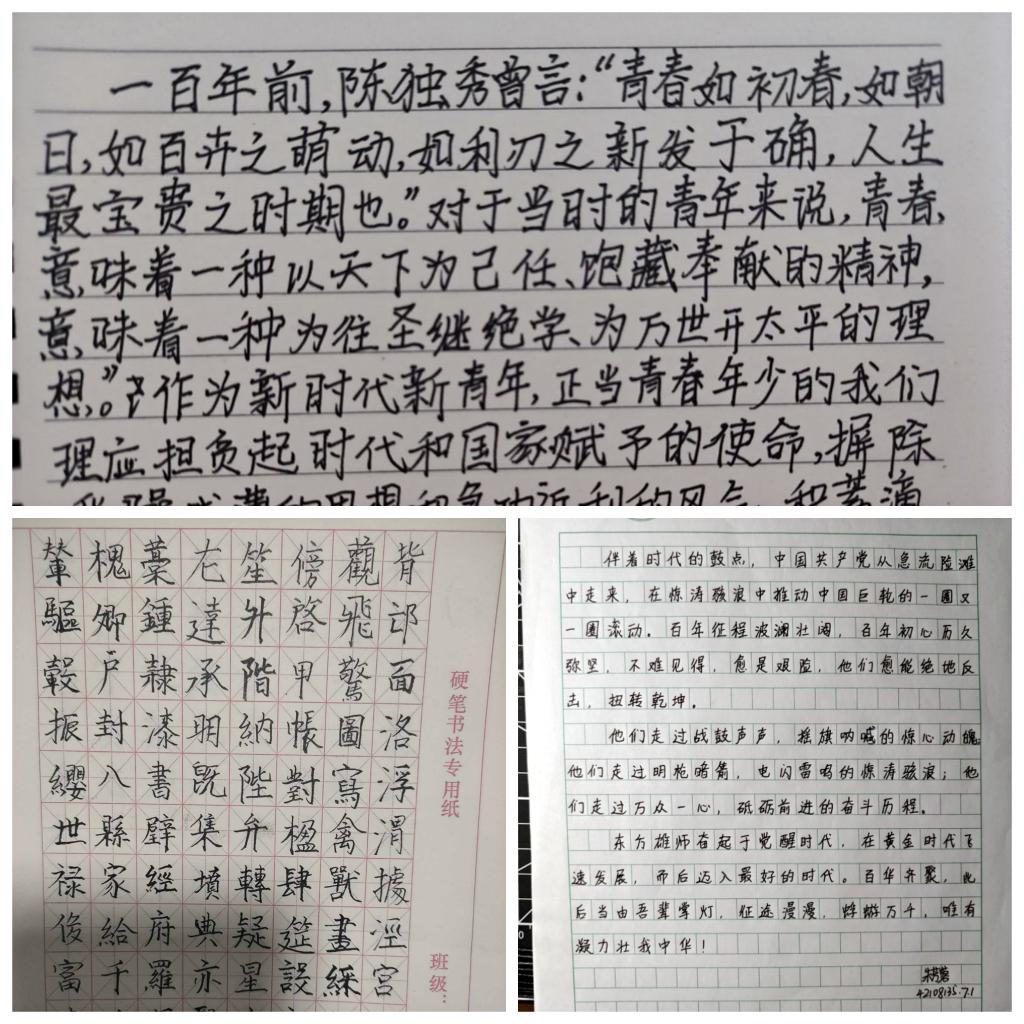 一百年前,陈独秀曾言:“青春如初春,如朝
日,如百卉之萌动,如利刃之新发于硎,人生
最宝贵之时期也。”对于当时的青年来说,青春,
意味着一种以天下为己任、饱藏奉献的精神,
意味着一种为往圣继绝学、为万世开太平的理
想。”作为新时代新青年,正当青春年少的我们
理应担负起时代和国家赋予的使命,摒除
背邙面洛浮渭據涇宮
觀飛驚圖寫禽獸畫綵
傍啓甲帳對楹肆筵設
笙升階納陛弁轉疑星
左達承明既集墳典亦
藁鍾隸漆書壁經府羅
槐卿戶封八縣家給千
輦驅轂振纓世祿侈富
硬笔书法专用纸
班级:
伴着时代的鼓点，中国共产党从急流险滩
中走来，在惊涛骇浪中推动中国巨轮的一圈又
一圈滚动。百年征程波澜壮阔，百年初心历久
弥坚，不难见得，愈是艰险，他们愈能绝地反
击，扭转乾坤。
他们走过战鼓声声，摇旗呐喊的惊心动魄
他们走过明枪暗箭，电闪雷鸣的惊涛骇浪；他
们走过万众一心，砥砺前进的奋斗历程。
东方雄师奋起于觉醒时代，在黄金时代飞
速发展，而后迈入最好的时代。百华齐聚，此
后当由吾辈掌灯，征途漫漫，蜉蝣万千，唯有
凝力壮我中华！
42108135.7.1